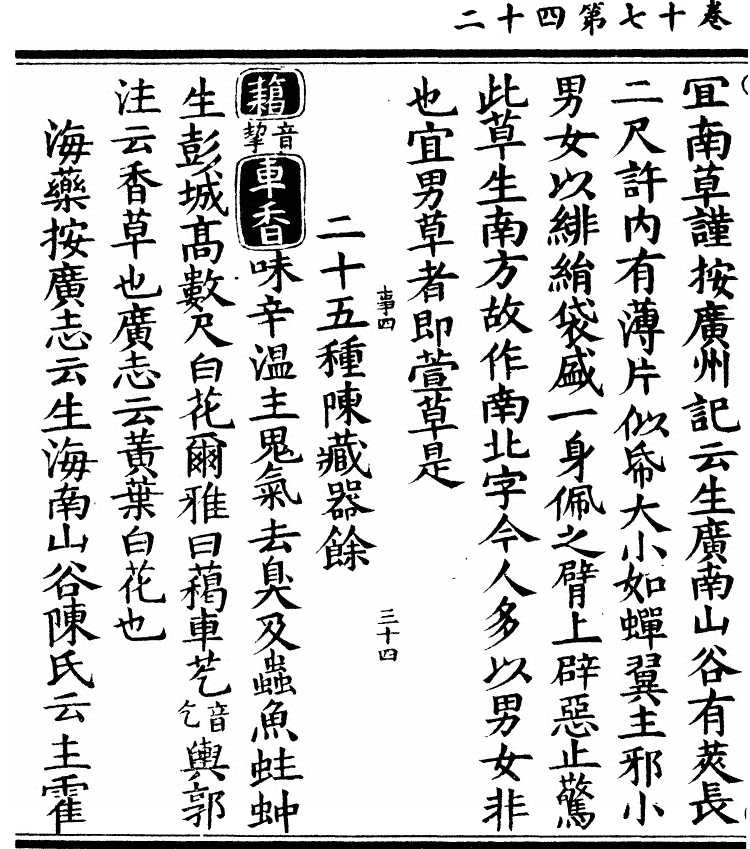 卷十七第四十二
宜南草謹按廣州記云生廣南山谷有莢長
二尺許内有薄片似帋大小如蟬翼主邪小
男女以緋絹袋盛一身佩之臂上辟惡止驚
此草生南方故作南北字今人多以男女非
也宜男草者即萱草是
事四
三十四
二十五種陳藏器餘
藒音挈車香味辛溫主鬼氣去臭及蟲魚蛀蚛
生彭城髙數尺白花爾雅曰藒車艺音乞輿郭
注云香草也廣志云黃葉白花也
海藥按廣志云生海南山谷陳氏云主霍